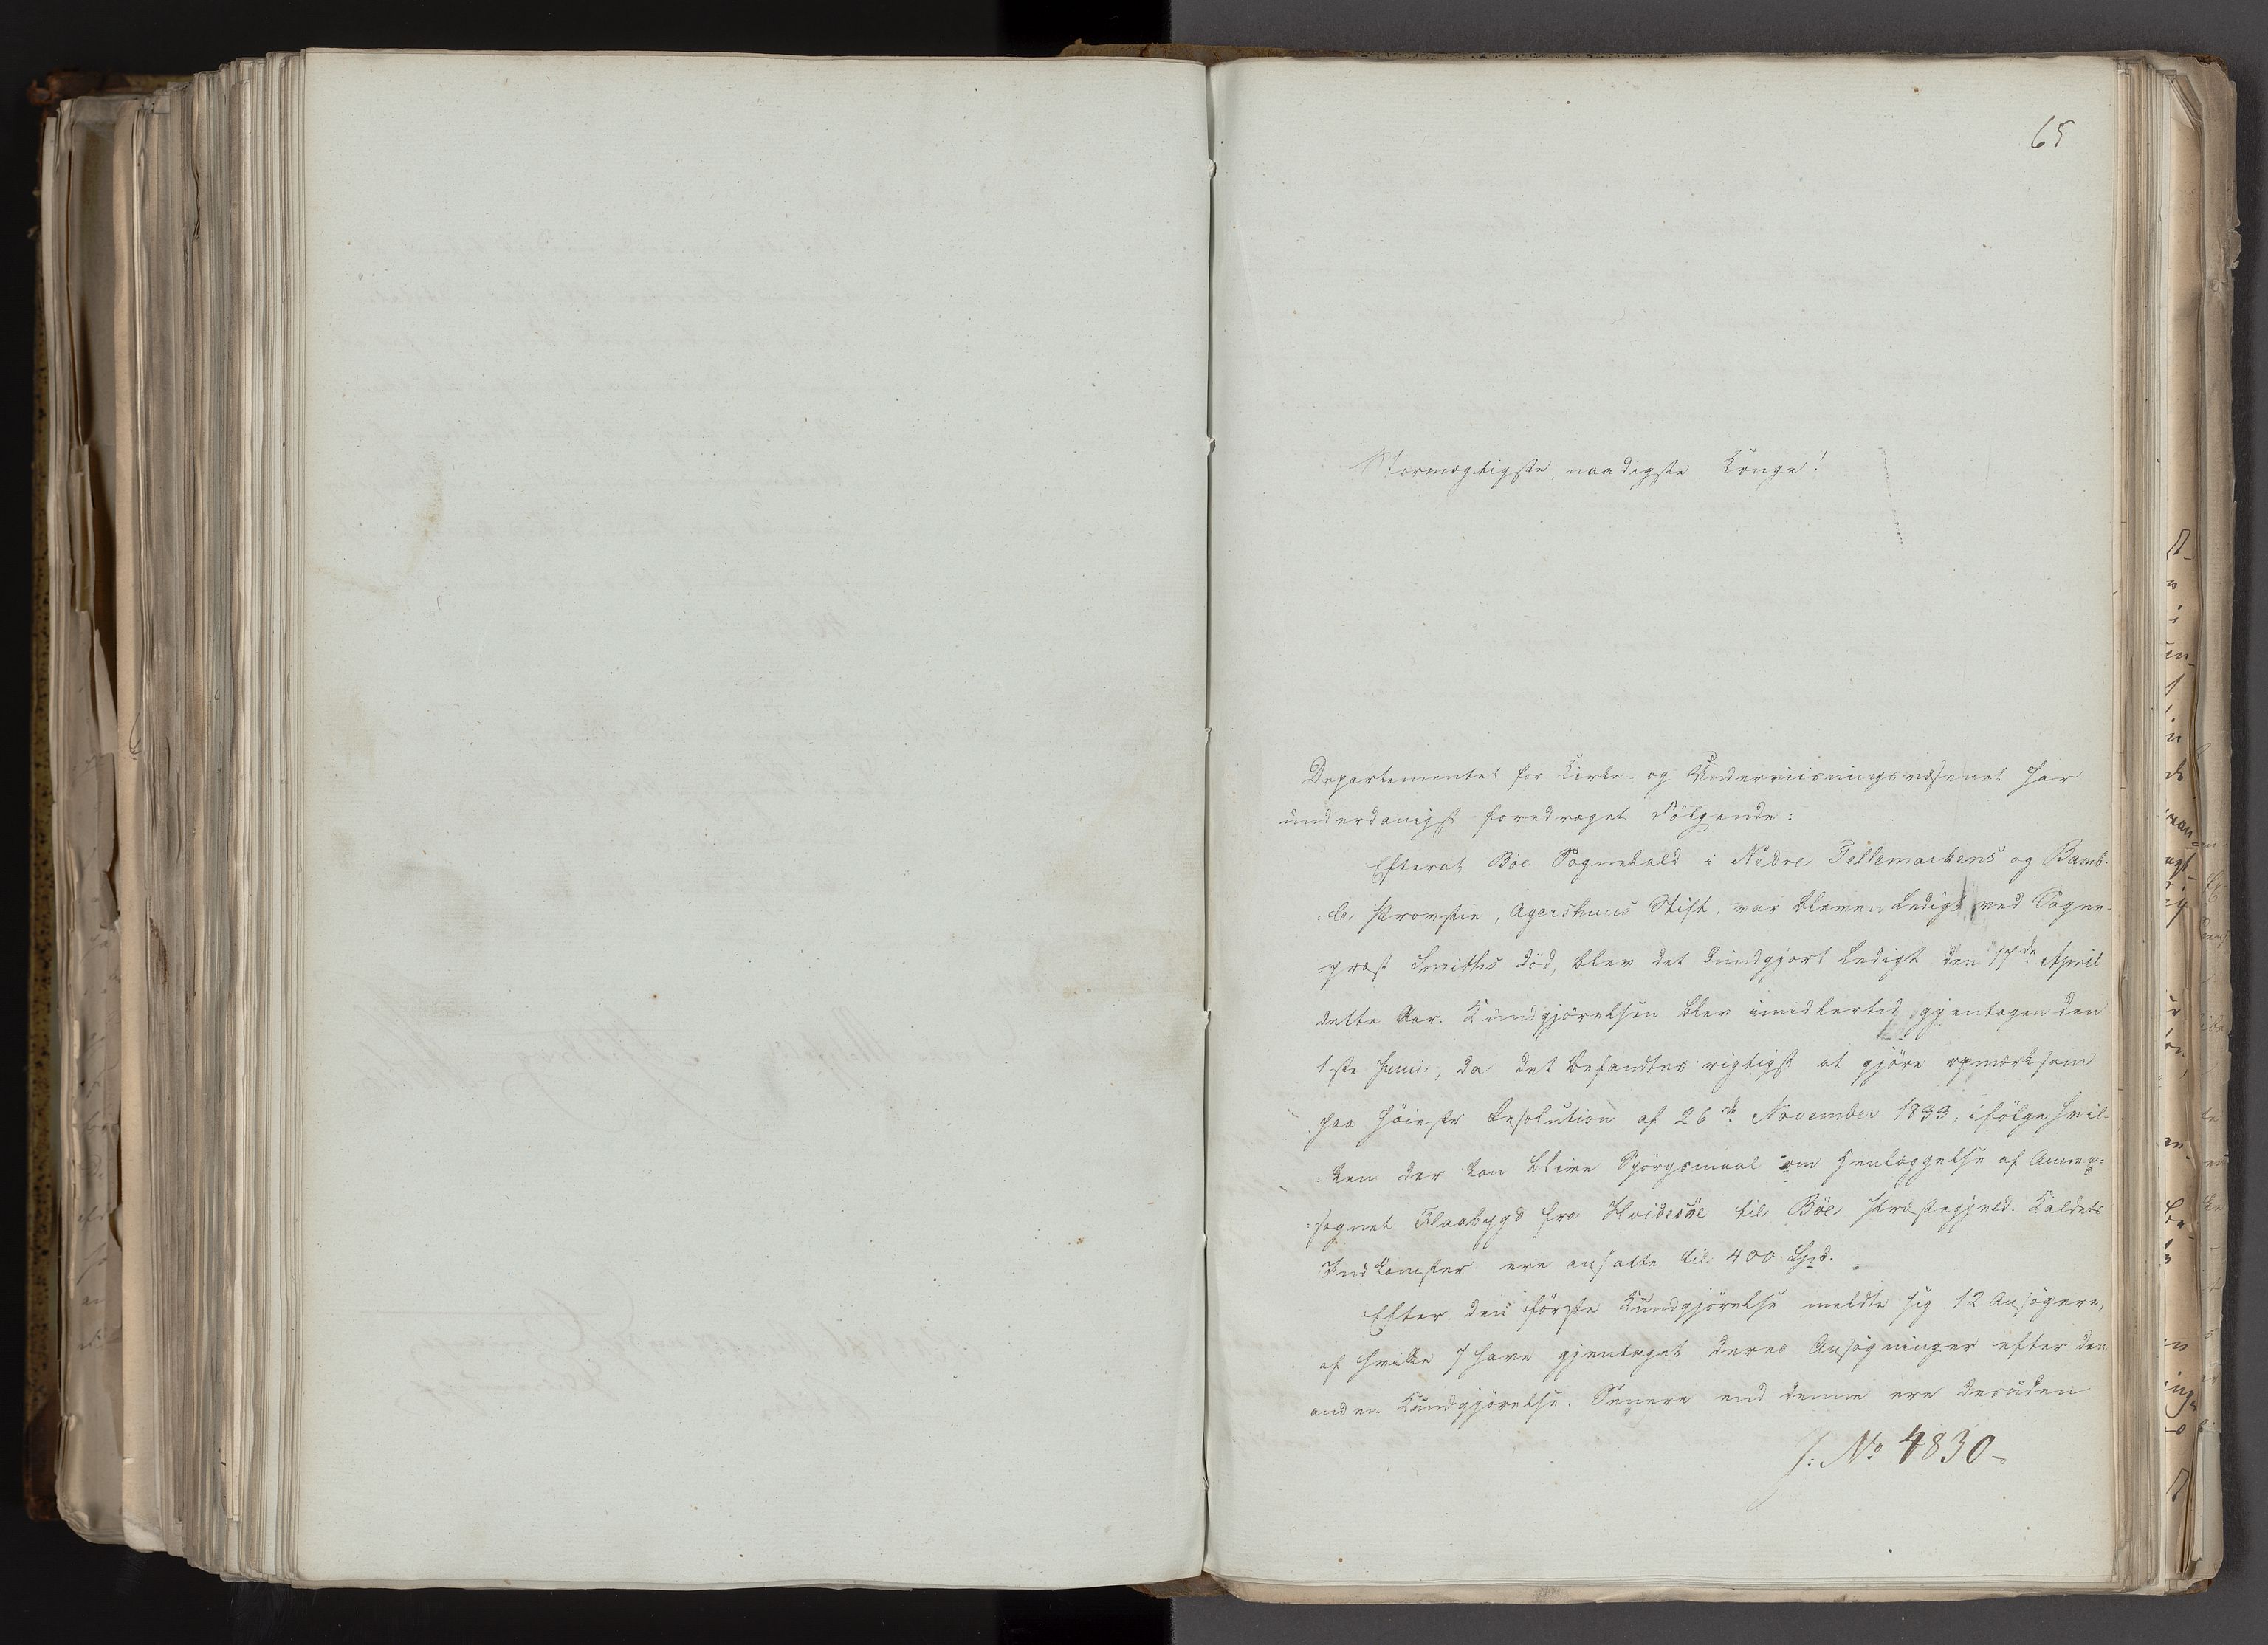 65
Stormægtigste, naadigste Konge!
Departementet for Kirke- og Underviisningsvæsenet har
underdanigst foredraget Følgende:
Efterat Böe Sognekald i Nedre Tellemarkens og Bamb-
le Provstie, Agershuus Stift, var bleven ledigt ved Sogne-
præst Smiths Död, blev det kundgjort ledigt den 17de April
dette Aar. Kundgjörelsen blev imidlertid gjentagen den
1ste Juni, da det befandtes rigtigst at gjöre opmærksom
paa höieste Resolution af 26de November 1833, ifölge hvil-
ken der kan blive Spörgsmaal om Henlæggelse af Annex-
sognet Flaabygd fra Hvidesöe til Böe Præstegjeld. Kaldets
Indkomster ere ansatte til 400 Spd.
Efter den förste Kundgjörelse meldte sig 12 Ansögere,
af hvilke 7 have gjentaget deres Ansögninger efter den
anden Kundgjörelse. Senere end denne ere desuden
J: No 4830